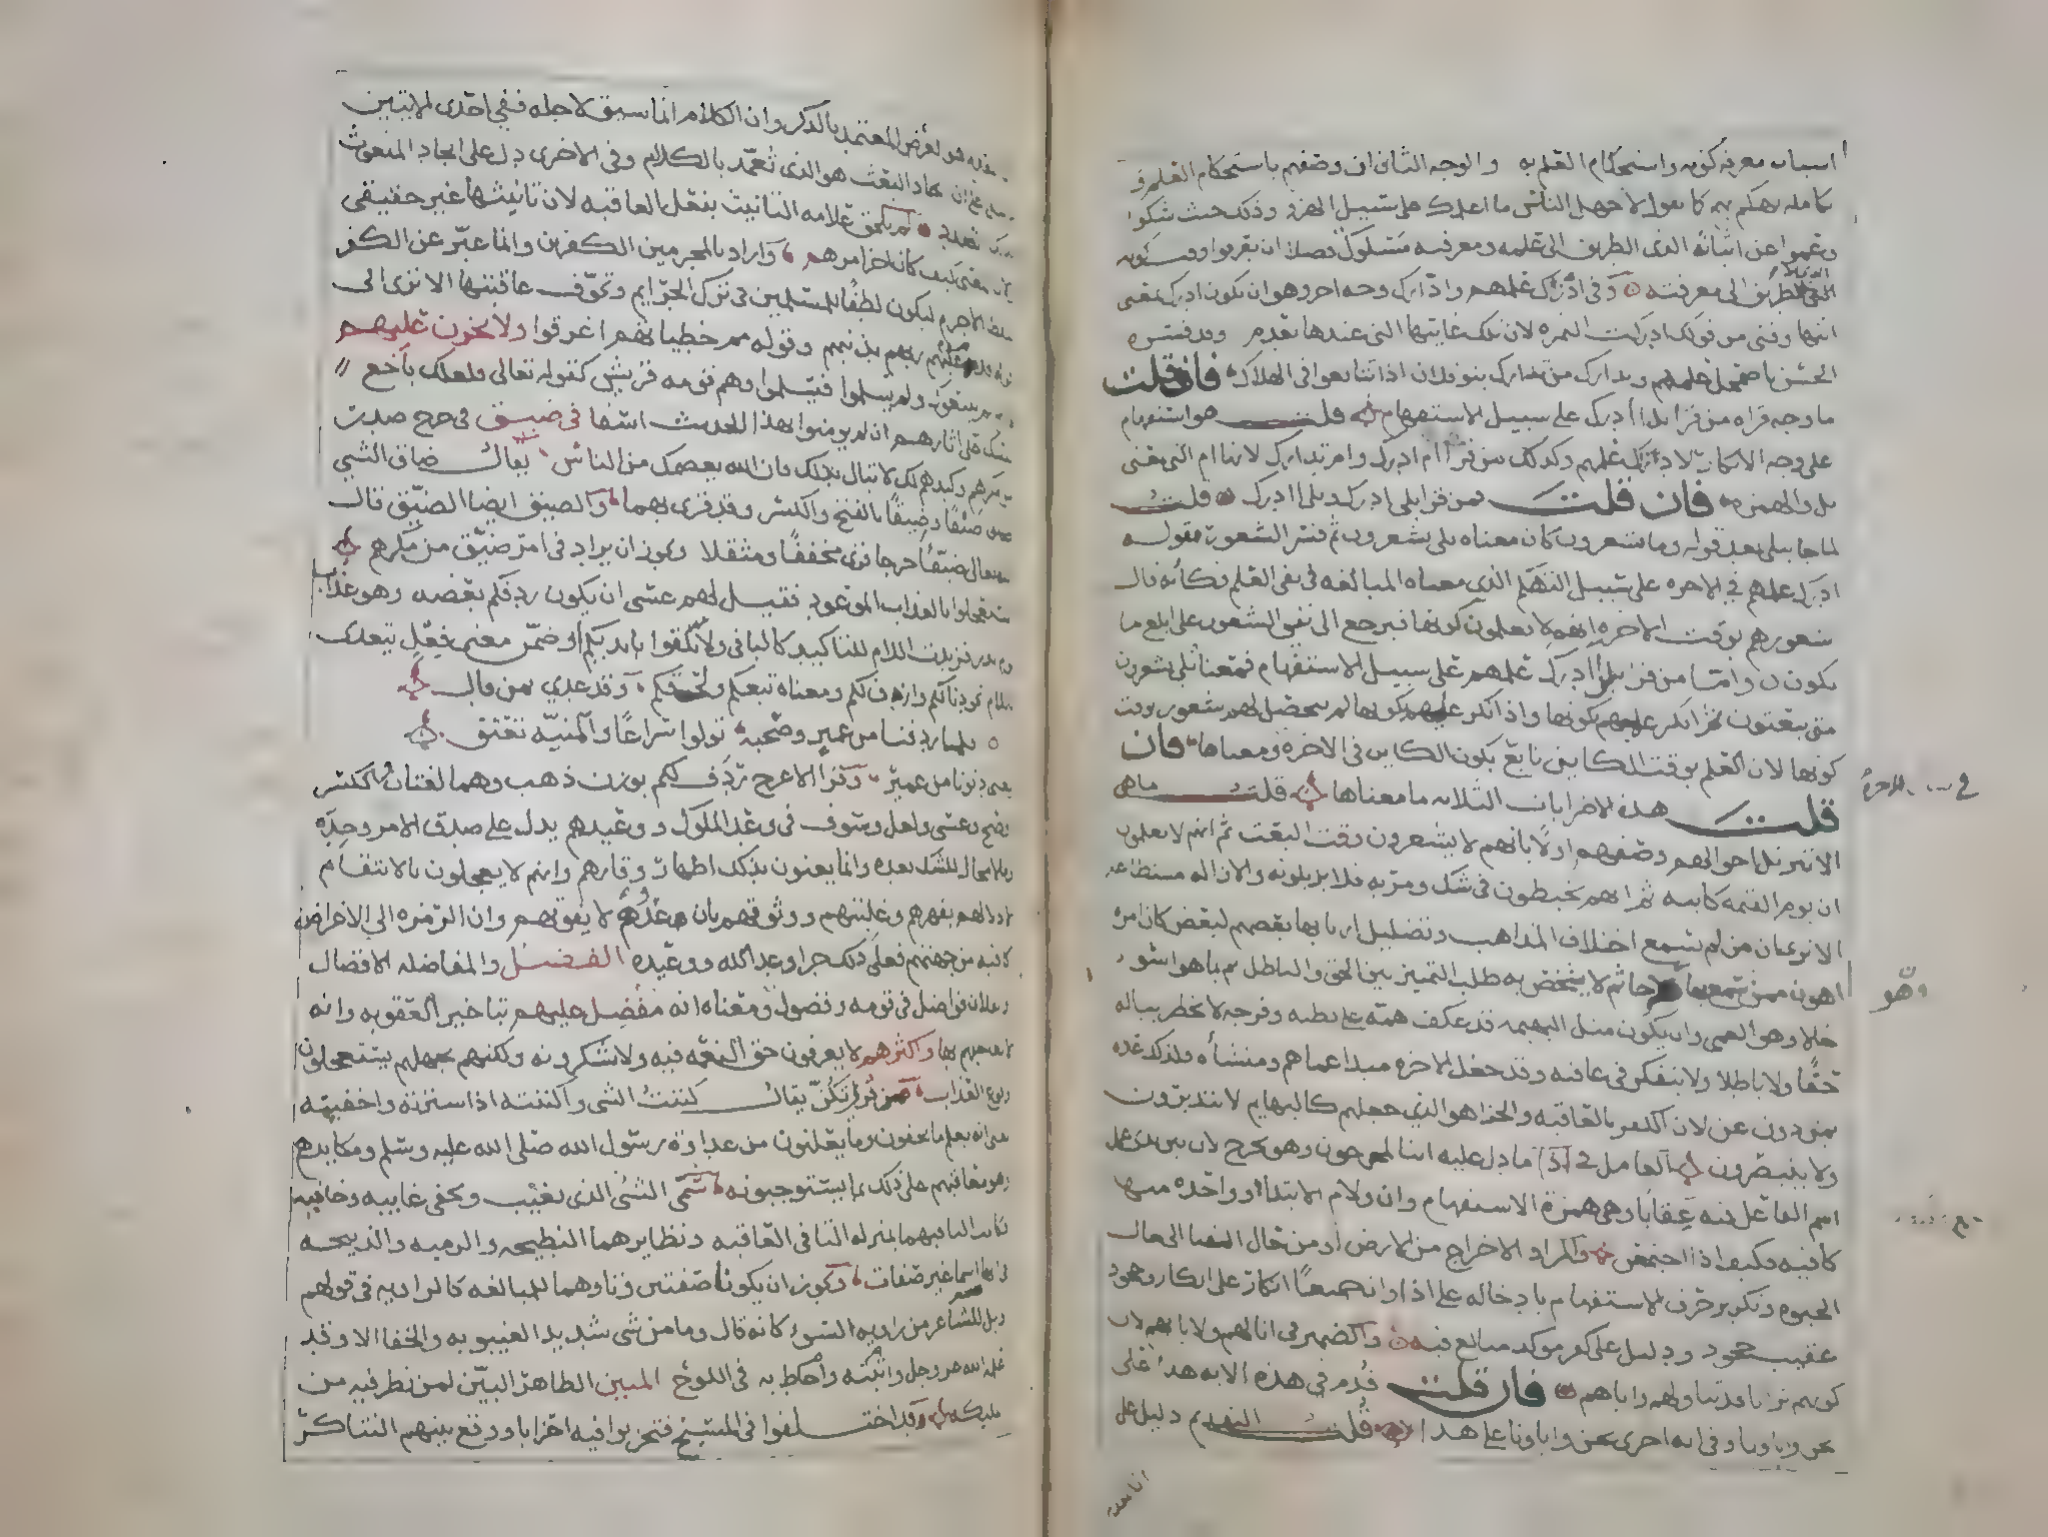 اسباب معرفه كونه واستحكام العلم به والوجه الثانى ان وصفهم باستحكام العلم و
تكامله تهكم بهم كما تقول لاجهل الناس ما اعلمك على سبيل الهزو وذلك حيث شكوا
وعموا عن اثباته الذى الطريق الى علمه ومعرفته مسلوك فضلا ان يعرفوا وقت كونه
الذى لا طريق الى معرفته وفى ادّرك علمهم وادّارك وجه اخر وهو ان يكون ادرك بمعنى
انتهى وفنى من قولك ادركت الثمره لان تلك غايتها التى عندها تعدم وقد فسره
الحسن باضمحل علمهم وتدارك من تدارك بنو فلان اذا تتابعوا فى الهلاك فان قلت
ما وجه قراه من قرا بل أادرك على سبيل الاستفهام قلت هو استفهام
على وجه الانكار لادراك علمهم وكذلك من قرا ام ادرك وام تدارك لانها ام التى بمعنى
بل والهمزه فان قلت فمن قرا بلى ادرك وبلى أادرك قلت
لما جا ببلى بعد قوله وما يشعرون كان معناه بلى يشعرون ثم فسر الشعور بقوله
ادرك علمهم فى الاخره على سبيل التهكم الذى معناه المبالغه فى نفى العلم فكأنه قال
شعورهم بوقت الاخره انهم لا يعلمون كونها فيرجع الى نفى الشعور على ابلغ ما
يكون وامّا من قرا بلى أادرك علمهم على سبيل الاستفهام فمعناه بلى يشعرون
متى يبعثون ثم انكر علمهم بكونها واذا انكر علمهم بكونها لم يتحصل لهم شعور بوقت
كونها لان العلم بوقت الكاين تابع بكون الكاين فى الاخره ومعناها فان
قلت هذه الاضرابات الثلاثه ما معناها قلت ما هى
الا تنزيل احوالهم وصفهم اولًا بانهم لا يشعرون وقت البعث ثم انهم لا يعلمون
ان يوم القيمه كاينه ثم انهم يخبطون فى شك ومريه فلا يزيلونه والازاله مستطاعه
الا ترى ان من لم يسمع اختلاف المذاهب وتضليل اربابها بعضهم لبعض كان امره
اهون ممن سمع بها وهو جاثم لا يشخص به طلب التمييز بين الحق والباطل ثم بما هو اسوء
حالا وهو العمى وان يكون مثل البهيمه قد عكف همه على بطنه وفرجه لا يخطر بباله
حقًا ولا باطلا ولا يتفكر فى عاقبه وقد جعل الاخره مبدا عماهم ومنشأه فلذلك عداه
بمن دون عن لان الكفر بالعاقبه والجزا هو الذى جعلهم كالبهايم لا يتدبرون
ولا يتبصرون العامل فى أإذا ما دل عليه اينا لمخرجون وهو نخرج لان بين يدى عمل
اسم الفاعل فيه عِقابًا وهى همزة الاستفهام وان ولام الابتدا وواحده منها
كافيه فكيف اذا اجتمعن والمراد الاخراج من الارض او من حال الفنا الى حال
الحيوه وتكرير حرف الاستفهام بادخاله على اذا وان جميعًا انكار على انكار وجحود
عقيب جحود ودليل على كفر موكد مبالغ فيه والضمير فى انا لهم ولاباهم لان
كونهم ترابا قد تناولهم واباهم فان قلت قدّم فى هذه الايه هذا على
نحن واباونا وفى ايه اخرى نحن واباونا على هذا قلت التقديم دليل على
وهو
المقدم هو الغرض المعتمد بالذكر وان الكلام انما سيق لاجله ففى احدى الايتين
دل على ان اتخاذ البعث هو الذى تعمّد بالكلام وفى الاخرى دل على اتخاذ المبعوث
بذلك الصدد لم تلحق علامه التانيث بفعل العاقبه لان تانيثها غير حقيقى
ولان معنى كيف كان اخر امرهم واراد بالمجرمين الكافرين وانما عبّر عن الكفر
بلفظ الاجرام ليكون لطفًا للمسلمين فى ترك الجرايم وتخوّف عاقبتها الا ترى الى
قوله فدمدم عليهم ربهم بذنبهم وقوله مما خطيآتهم اغرقوا ولا تحزن عليهم
لانهم لم يتبعوك ولم يسلموا فيسلموا وهم قومه قريش كقوله تعالى فلعلك باخع
نفسك على اثارهم ان لم يومنوا بهذا الحديث اسفا فى ضيق فى حرج صدر
من مكرهم وكيدهم لك لا تبال بذلك فان الله يعصمك من الناس يقال ضاق الشى
ضَيقًا وضِيقًا بالفتح والكسر وقد قرى بهما والضيق ايضا الضيّق قال
الله تعالى ضيّقًا حرجا قرى مخففًا ومثقلا ويجوز ان يراد فى امر ضيّق من مكرهم
استعجلوا بالعذاب الموعود فقيل لهم عسى ان يكون ردفكم بعضه وهو عذاب
يوم بدر فزيدت اللام للتاكيد كالبا فى ولا تلقوا بايديكم او ضمّن معنى فعل يتعدى
باللام نحو دنا لكم وازف لكم ومعناه تبعكم ولحقكم وقد عدى بمن قال
فلما ردفنا من عميرٍ وصحبه تولوا سراعًا والمنيّه تعنق
يعنى دنونا من عمير وقرا الاعرج ردَف لكم بوزن ذهب وهما لغتان والكسر
افصح وعسى ولعل وسوف فى وعد الملوك ووعيدهم يدل على صدق الامر وجدّه
وما لا مجال للشك بعده وانما يعنون بذلك اظهار وقارهم وانهم لا يعجلون بالانتقام
لادلالهم بقهرهم وغلبتهم ووثوقهم بان عدوهم لا يفوتهم وان الرمزه الى الاغراض
كافيه من جهتهم فعلى ذلك جرا وعد الله ووعيده الفضل والفاضله الافضال
ولفلان فواضل فى قومه وفضول ومعناه انه مفضل عليهم بتاخير العقوبه وانه
لا يعاجلهم بها واكثرهم لا يعرفون حق النعمه فيه ولا يشكرونه ولكنهم بجهلهم يستعجلون
وقوع العذاب قرى تكنّ يقال كننتُ الشى واكننته اذا سترته واخفيته
يعنى انه يعلم ما يخفون وما يعلنون من عداوة رسول الله صلى الله عليه وسلم ومكايدهم
وهو معاقبهم على ذلك بما يستوجبونه سمّى الشئ الذى يغيب ويخفى غايبه وخافيه
فكانت التا فيهما بمنزله التا فى العاقبه ونظايرهما النطيحه والرميه والذبيحه
فى انها اسما غير صفات ويجوز ان يكونا صفتين وتاوهما للمبالغه كالراويه فى قولهم
ويل للشاعر من راويه السوء كانه قال وما من شى شديد الغيبوبه والخفا الا وقد
علمه الله عز وجل واثبته واحاط به فى اللوح المبين الظاهر البيّن لمن نظر فيه من
الملايكه قد اختلفوا فى المسيح فتحزبوا فيه احزابا ووقع بينهم التناكر